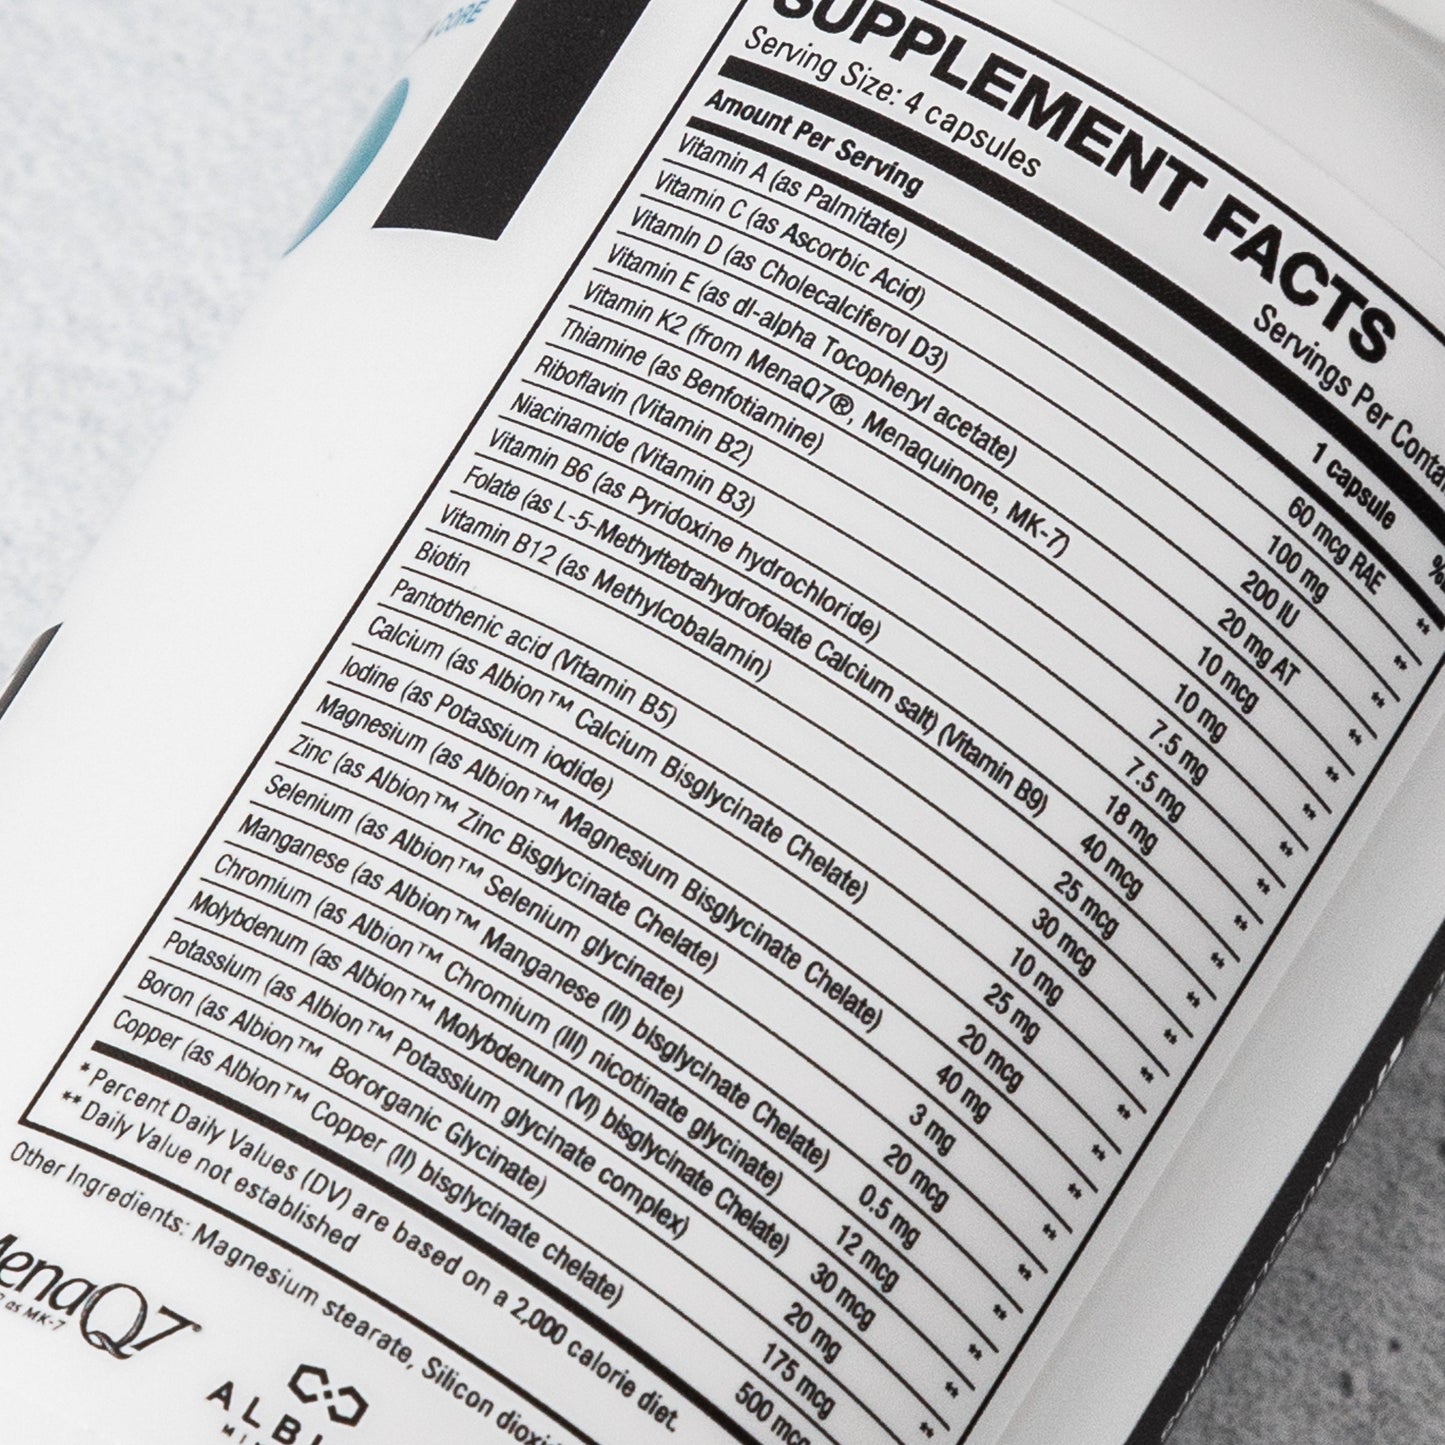 CORE
SUPPLEMENT FACTS
Serving Size: 4 capsules Servings Per
Amount Per Serving 1 capsule %
Vitamin A (as Palmitate) 60 mcg RAE **
Vitamin C (as Ascorbic Acid) 100 mg **
Vitamin D (as Cholecalciferol D3) 200 IU **
Vitamin E (as dl-alpha Tocopheryl acetate) 20 mg AT **
Vitamin K2 (from MenaQ7®, Menaquinone, MK-7) 10 mcg **
Thiamine (as Benfotiamine) 10 mg **
Riboflavin (Vitamin B2) 7.5 mg **
Niacinamide (Vitamin B3) 7.5 mg **
Vitamin B6 (as Pyridoxine hydrochloride) 18 mg **
Folate (as L-5-Methyltetrahydrofolate Calcium salt) (Vitamin B9) 40 mcg **
Vitamin B12 (as Methylcobalamin) 25 mcg **
Biotin 30 mcg **
Pantothenic acid (Vitamin B5) 10 mg **
Calcium (as Albion™ Calcium Bisglycinate Chelate) 25 mg **
Iodine (as Potassium iodide) 20 mcg **
Magnesium (as Albion™ Magnesium Bisglycinate Chelate) 40 mg **
Zinc (as Albion™ Zinc Bisglycinate Chelate) 3 mg **
Selenium (as Albion™ Selenium glycinate) 20 mcg **
Manganese (as Albion™ Manganese (II) bisglycinate Chelate) 0.5 mg **
Chromium (as Albion™ Chromium (III) nicotinate glycinate) 12 mcg **
Molybdenum (as Albion™ Molybdenum (VI) bisglycinate Chelate) 30 mcg **
Potassium (as Albion™ Potassium glycinate complex) 20 mg **
Boron (as Albion™ Bororganic Glycinate) 175 mcg **
Copper (as Albion™ Copper (II) bisglycinate chelate) 500 mcg
* Percent Daily Values (DV) are based on a 2,000 calorie diet.
** Daily Value not established
Other Ingredients: Magnesium stearate, Silicon
MenaQ7
as MK-7